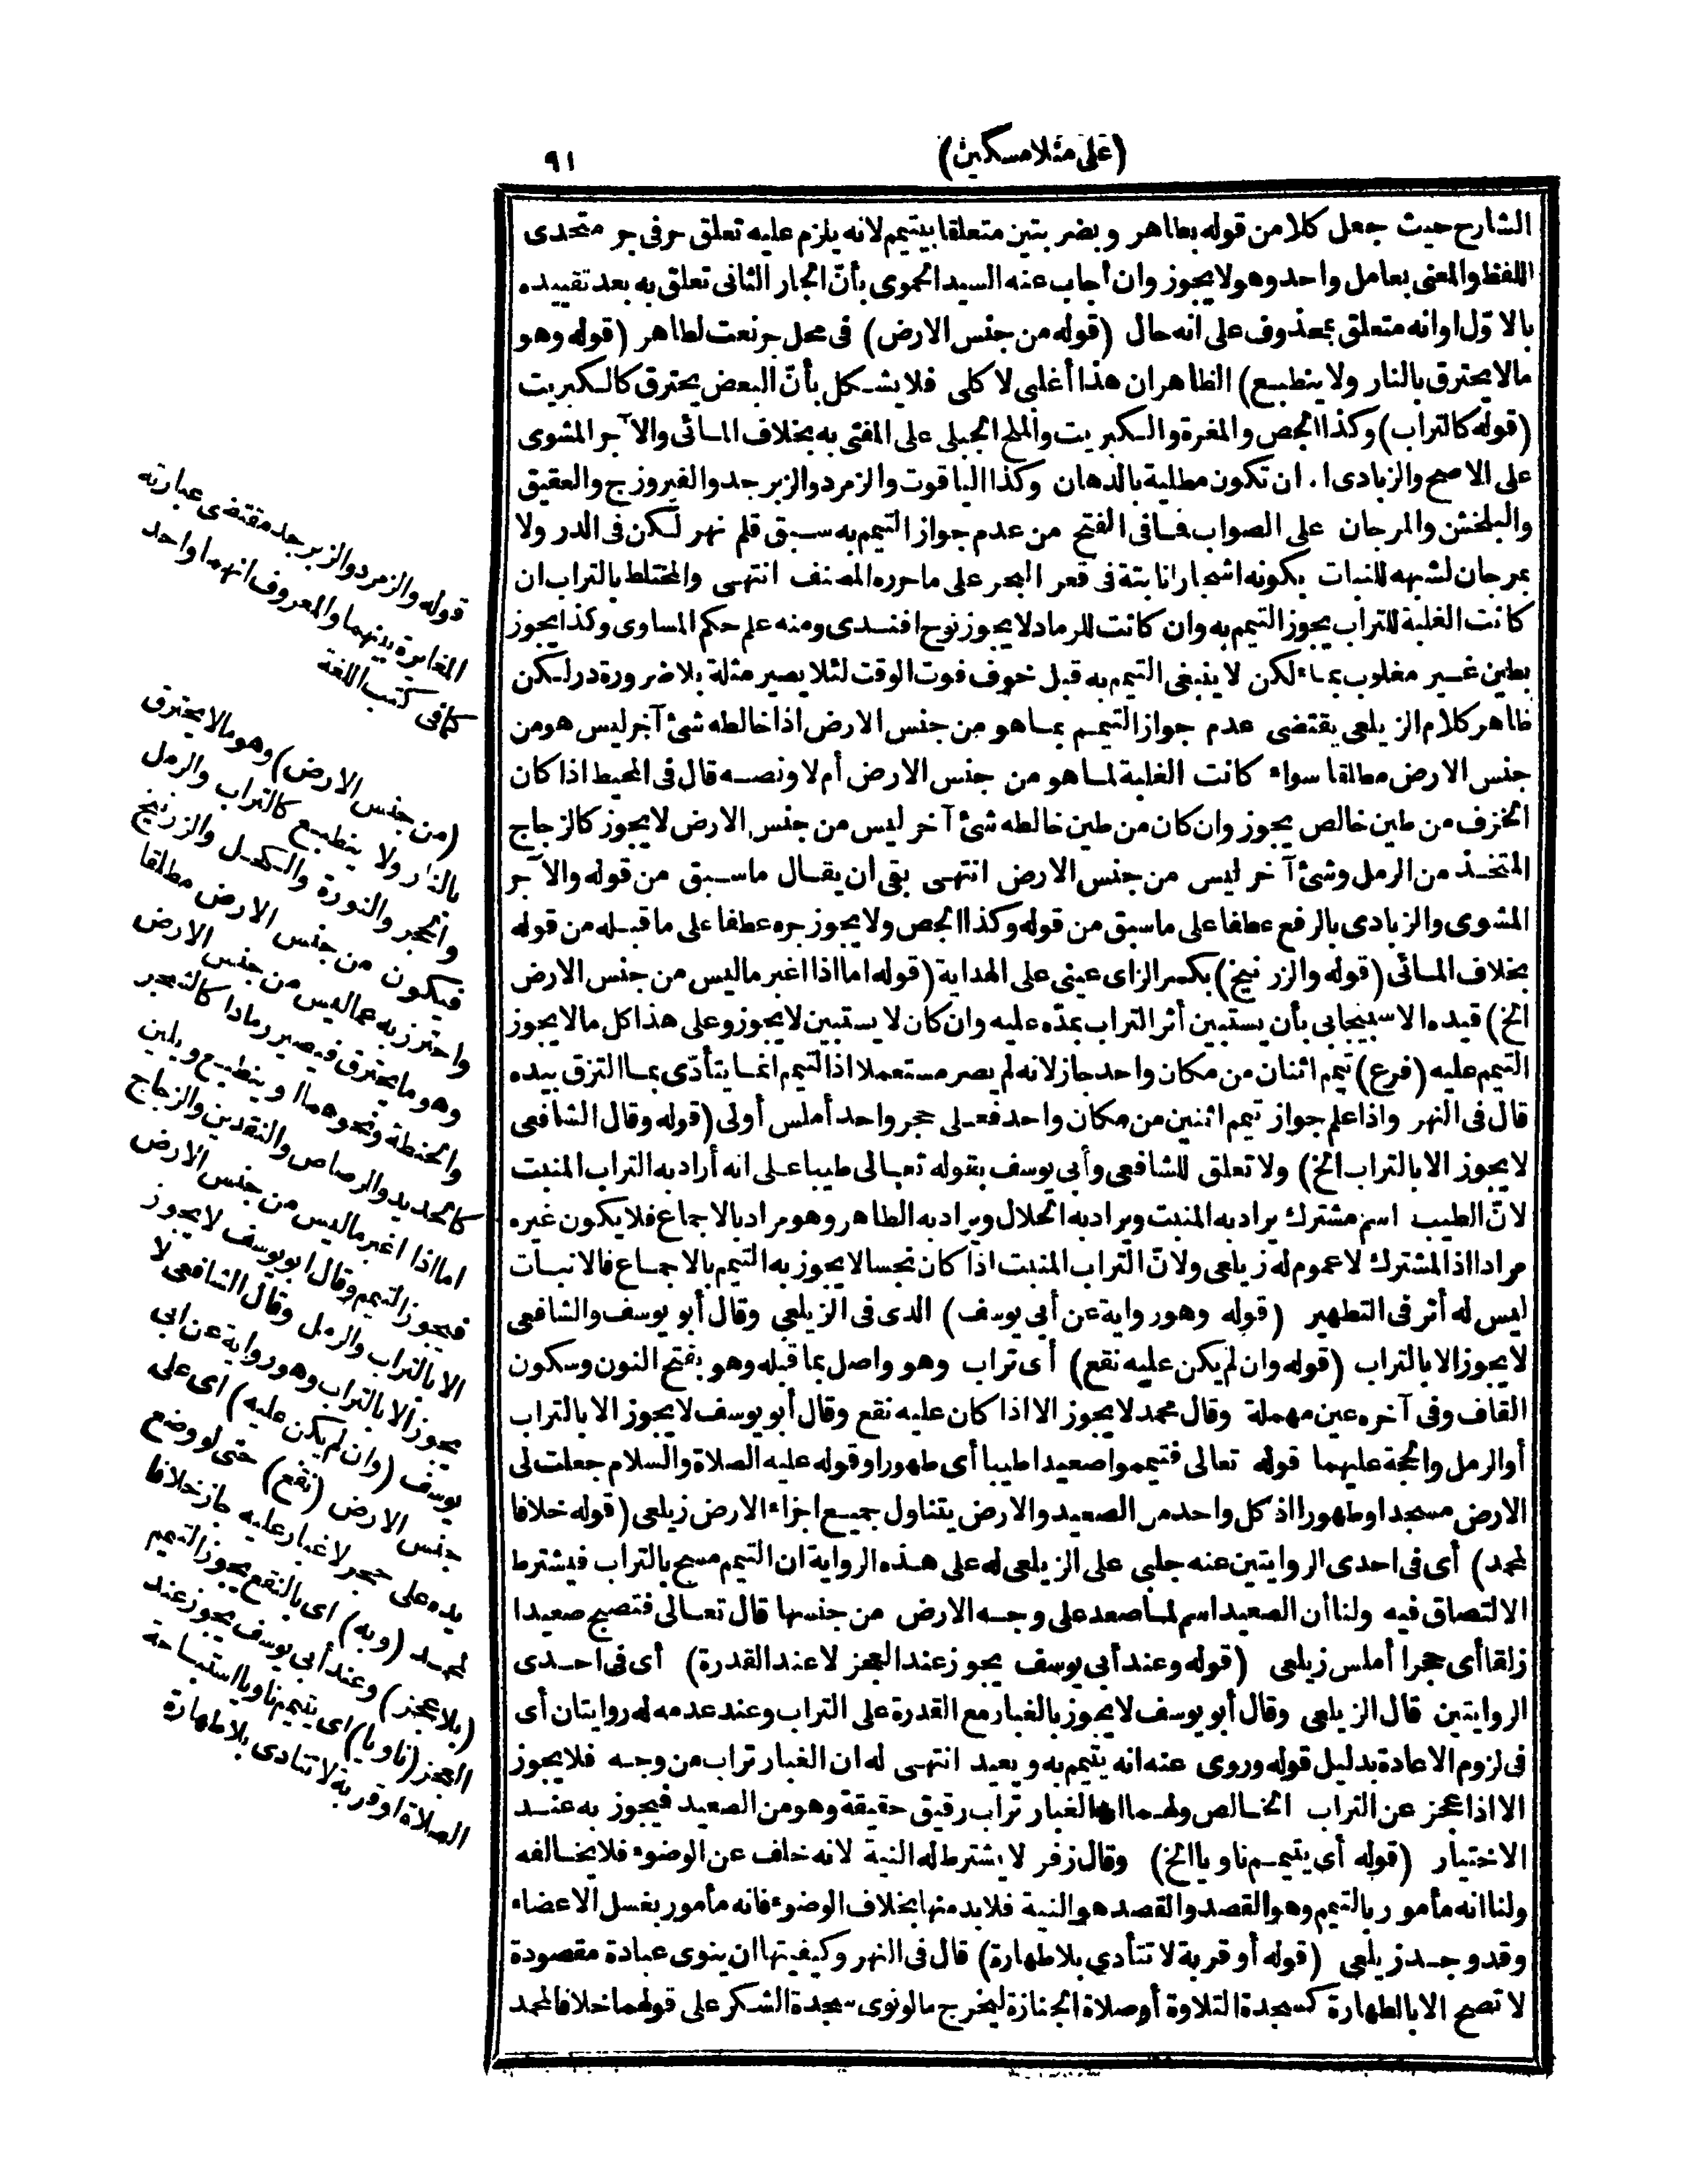 (على منلا مسكين)
٩١
الشارح حيث جعل كلا من قوله بطاهر وبضربتين متعلقا بيتيمم لانه يلزم عليه تعلق حرفى جر متحدى
اللفظ والمعنى بعامل واحد وهو لا يجوز وان أجاب عنه السيد الحموى بأنّ الجار الثانى تعلق به بعد تقييده
بالاوّل اوانه متعلق بمحذوف على انه حال (قوله من جنس الارض) فى محل جر نعت لطاهر (قوله وهو
مالا يحترق بالنار ولا ينطبع) الظاهر ان هذا أغلبى لا كلى فلا يشكل بأنّ البعض يحترق كالكبريت
(قوله كالتراب) وكذا الجص والمغرة والكبريت والملح الجبلى على المفتى به بخلاف المائى والآجر المشوى
على الاصح والزبادى ان تكون مطلية بالدهان وكذا الياقوت والزمرد والزبرجد والفيروزج والعقيق
والبلخش والمرجان على الصواب فما فى الفتح من عدم جواز التيمم به سبق قلم نهر لكن فى الدر ولا
بمرجان لشبهه للنبات بكونه اشجارا نابتة فى قعر البحر على ما حرره المصنف انتهى والمختلط بالتراب ان
كانت الغلبة للتراب يجوز التيمم به وان كانت للرماد لا يجوز نوح افندى ومنه علم حكم المساوى وكذا يجوز
بطين غير مغلوب بماء لكن لا ينبغى التيمم به قبل خوف فوت الوقت لئلا يصير مثلة بلا ضرورة در لكن
ظاهر كلام الزيلعى يقتضى عدم جواز التيمم بما هو من جنس الارض اذا خالطه شئ آخر ليس هو من
جنس الارض مطلقا سواء كانت الغلبة لما هو من جنس الارض أم لا ونصه قال فى المحيط اذا كان
الخزف من طين خالص يجوز وان كان من طين خالطه شئ آخر ليس من جنس الارض لا يجوز كالزجاج
المتخذ من الرمل وشئ آخر ليس من جنس الارض انتهى بقى ان يقال ما سبق من قوله والآجر
المشوى والزبادى بالرفع عطفا على ما سبق من قوله وكذا الجص ولا يجوز جره عطفا على ما قبله من قوله
بخلاف المائى (قوله والزرنيخ) بكسر الزاى عينى على الهداية (قوله اما اذا اغبر ما ليس من جنس الارض
الخ) قيده الاسبيجابى بأن يستبين أثر التراب بمدّه عليه وان كان لا يستبين لا يجوز وعلى هذا كل مالا يجوز
التيمم عليه (فرع) تيمم اثنان من مكان واحد جاز لانه لم يصر مستعملا اذ التيمم انما يتأدّى بما التزق بيده
قال فى النهر واذا علم جواز تيمم اثنين من مكان واحد فعلى حجر واحد أملس أولى (قوله وقال الشافعى
لا يجوز الا بالتراب الخ) ولا تعلق للشافعى وأبى يوسف بقوله تعالى طيبا على انه أراد به التراب المنبت
لانّ الطيب اسم مشترك يراد به المنبت ويراد به الحلال ويراد به الطاهر وهو مراد بالاجماع فلا يكون غيره
مرادا اذ المشترك لا عموم له زيلعى ولانّ التراب المنبت اذا كان نجسا لا يجوز به التيمم بالاجماع فالانبات
ليس له أثر فى التطهير (قوله وهو رواية عن أبى يوسف) الذى فى الزيلعى وقال أبو يوسف والشافعى
لا يجوز الا بالتراب (قوله وان لم يكن عليه نقع) أى تراب وهو واصل بما قبله وهو بفتح النون وسكون
القاف وفى آخره عين مهملة وقال محمد لا يجوز الا اذا كان عليه نقع وقال أبو يوسف لا يجوز الا بالتراب
أو الرمل والحجة عليهما قوله تعالى فتيمموا صعيدا طيبا أى طهورا وقوله عليه الصلاة والسلام جعلت لى
الارض مسجدا وطهورا اذ كل واحد من الصعيد والارض يتناول جميع اجزاء الارض زيلعى (قوله خلافا
لمحمد) أى فى احدى الروايتين عنه جلبى على الزيلعى له على هذه الرواية ان التيمم مسح بالتراب فيشترط
الالتصاق فيه ولنا أن الصعيد اسم لما صعد على وجه الارض من جنسها قال تعالى فتصبح صعيدا
زلقا أى حجرا أملس زيلعى (قوله وعند أبى يوسف يجوز عند العجز لا عند القدرة) أى فى احدى
الروايتين قال الزيلعى وقال أبو يوسف لا يجوز بالغبار مع القدرة على التراب وعند عدمه له روايتان أى
فى لزوم الاعادة بدليل قوله وروى عنه انه يتيمم به ويعيد انتهى له ان الغبار تراب من وجه فلا يجوز
الا اذا عجز عن التراب الخالص ولهما ان الغبار تراب رقيق حقيقة وهو من الصعيد فيجوز به عند
الاختيار (قوله أى يتيمم ناويا الخ) وقال زفر لا يشترط له النية لانه خلف عن الوضوء فلا يخالفه
ولنا انه مأمور بالتيمم وهو القصد والقصد هو النية فلا بد منها بخلاف الوضوء فانه مأمور بغسل الاعضاء
وقد وجد زيلعى (قوله أو قربة لا تتأدى بلا طهارة) قال فى النهر وكيفيتها ان ينوى عبادة مقصودة
لا تصح الا بالطهارة كسجدة التلاوة أو صلاة الجنازة ليخرج ما لو نوى سجدة الشكر على قولهما خلافا لمحمد
قوله والزمرد والزبرجد مقتضى عبارته
المغايرة بينهما والمعروف انهما واحد
كما فى كتب اللغة
(من جنس الارض) وهو مالا يحترق
بالنار ولا ينطبع كالتراب والرمل
والحجر والنورة والكحل والزرنيخ
فيكون من جنس الارض مطلقا
واحترز به عما ليس من جنس الارض
وهو ما يحترق فيصير رمادا كالشجر
والحنطة ونحوهما او ينطبع ويلين
كالحديد والرصاص والنقدين والزجاج
اما اذا اغبر ما ليس من جنس الارض
فيجوز التيمم وقال ابو يوسف لا يجوز
الا بالتراب والرمل وقال الشافعى لا
يجوز الا بالتراب وهو رواية عن ابى
يوسف (وان لم يكن عليه) اى على
جنس الارض (نقع) حتى لو وضع
يده على حجر لا غبار عليه جاز خلافا
لمحمد (وبه) اى بالنقع يجوز التيمم
(بلا عجز) وعند أبى يوسف يجوز عند
العجز (ناويا) اى يتيمم ناويا استباحة
الصلاة او قربة لا تتادى بلا طهارة